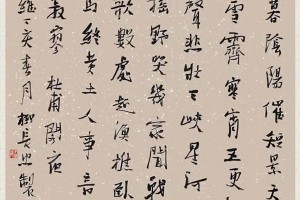 暮陰陽催短景天
雪霽寒宵五更
聲悲壯三峽星河
搖野哭幾家聞戰
歌數處起漁樵臥
馬終黃土人事音
寂寥 杜甫閣夜
丁亥春月柳長忠製